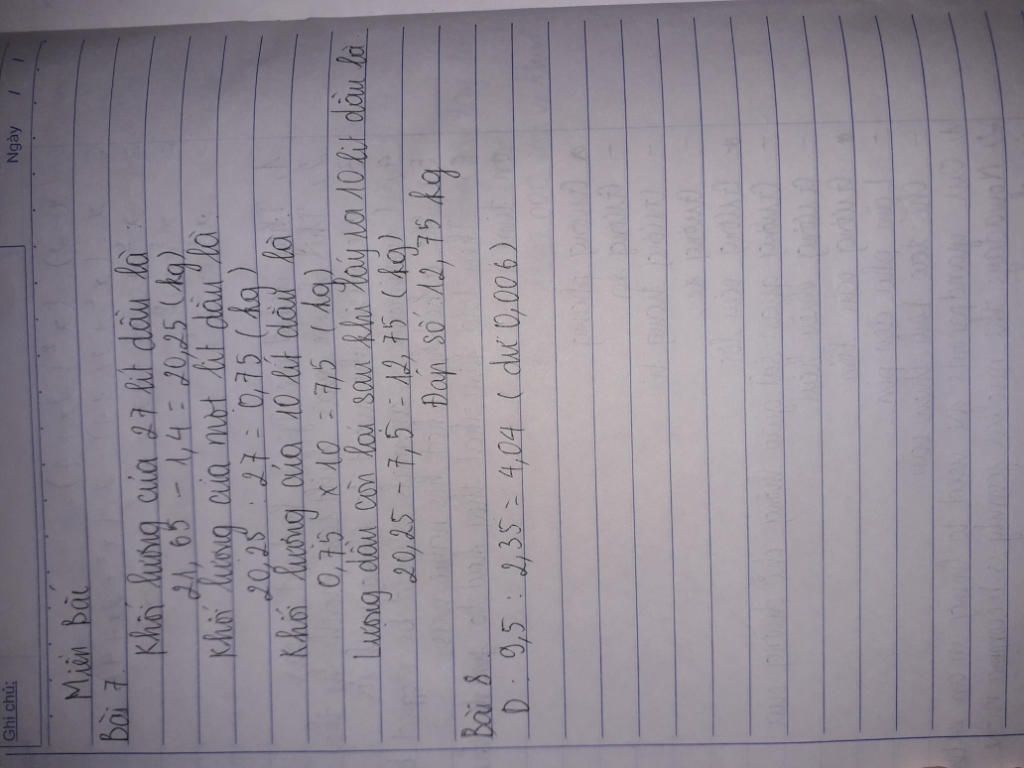 Ghi chú:
Ngày / /
Miên Bài
Bài 7
Khối lượng của 27 lít dầu là:
21,65 - 1,4 = 20,25 (kg)
Khối lượng của một lít dầu là:
20,25 : 27 = 0,75 (kg)
Khối lượng của 10 lít dầu là:
0,75 x 10 = 7,5 (kg)
Lượng dầu còn lại sau khi lấy ra 10 lít dầu là
20,25 - 7,5 = 12,75 (kg)
Đáp số : 12,75 kg
Bài 8
D. 9,5 : 2,35 = 4,04 (dư 0,006)